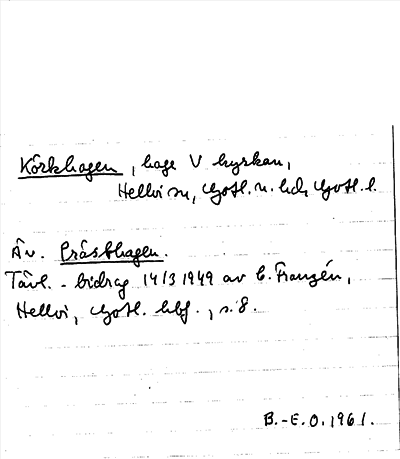 Körkhagen, hage V kyrkan,
Hellvi sn, Gotl. n. hd, Gotl. l.
Äv. Prästhagen.
Tävl.-bidrag 14/3 1949 av C. Franzén,
Hellvi, Gotl. hbf., s. 8.
B.-E.O. 1961.